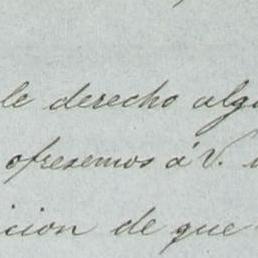 le derecho alg
ofresemos á V.
icion de que